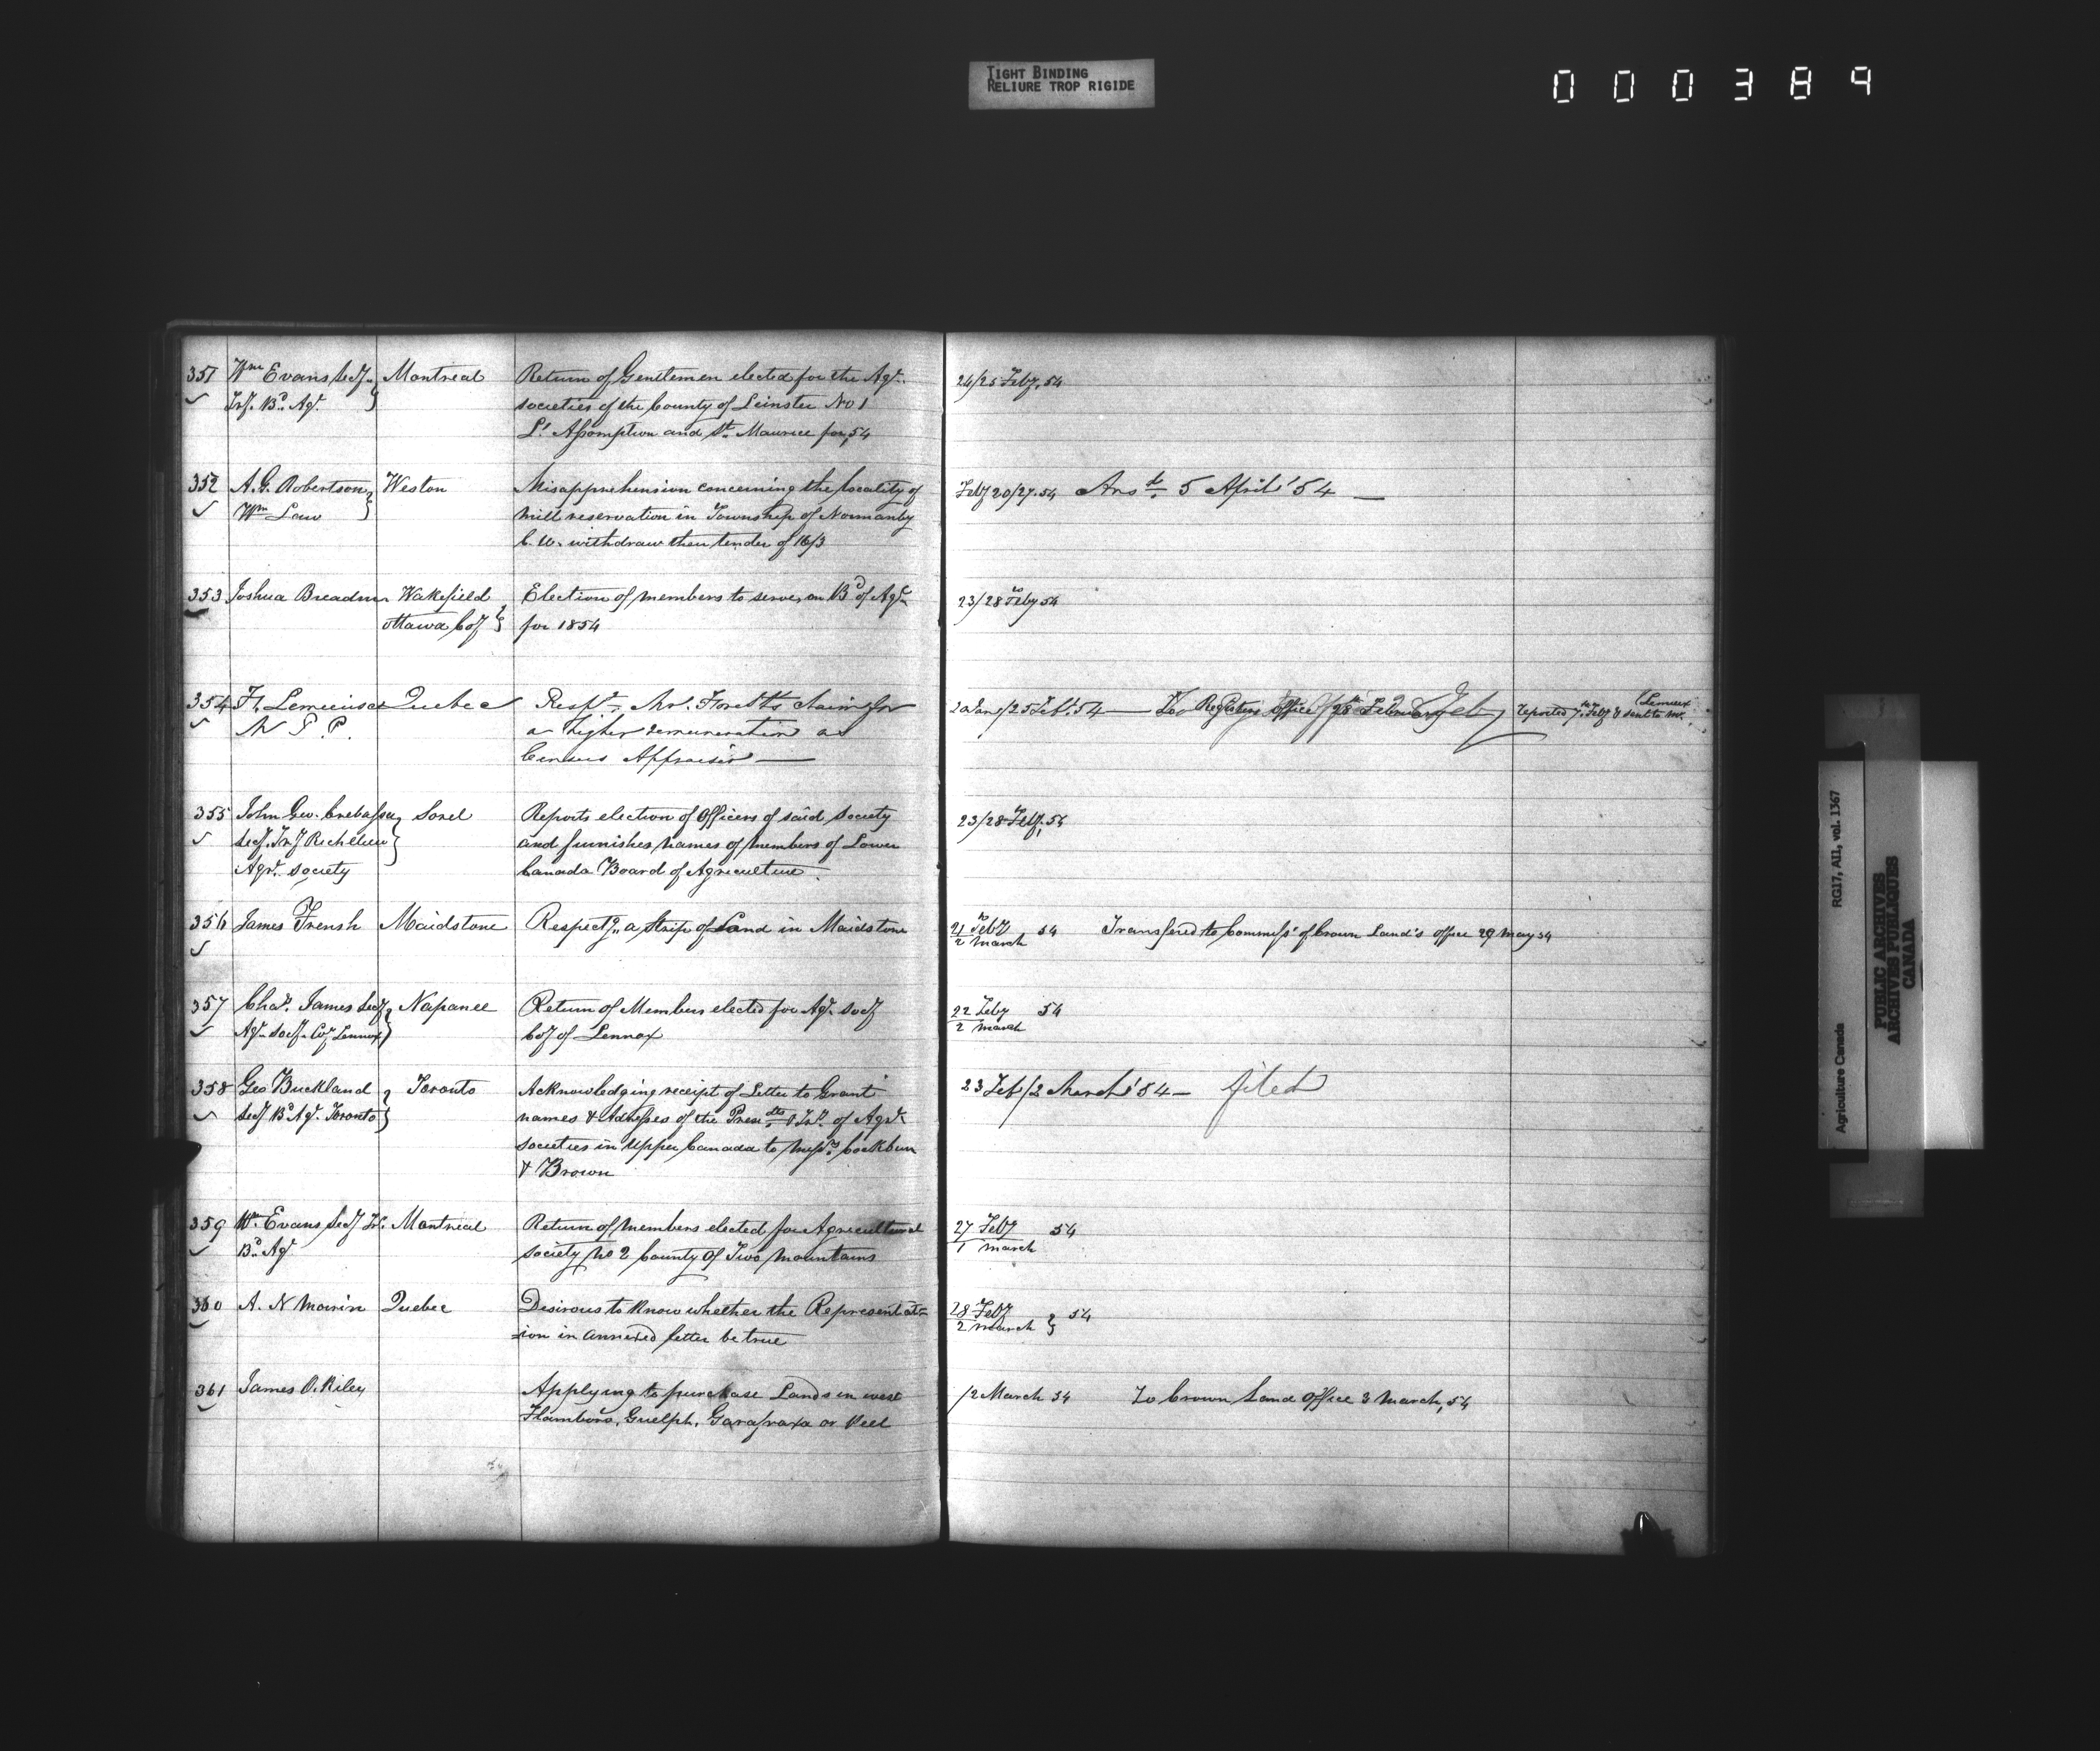 TIGHT BINDING
RELIURE TROP RIGIDE
000389
351 Wm Evans Secy Montreal Return of Gentlemen elected for the Agr. 24/25 Feby, 54
Try. Bd. Agr. societies of the County of Leinster No 1
L'Assomption and St. Maurice for, 54
352 A. G. Robertson Weston Misapprehension concerning the locality of Feby 20/27. 54 Ansd. 5 April '54 —
Wm Law mill reservation in Township of Normanby
C. W. withdraw their tender of 16/3
353 Joshua Breadmn Wakefield Election of members to serve on Bd of Agr. 23/28 Feby 54
Ottawa Coy for 1854
354 Fs. Lemieux Quebec Respg. Mr. claim for 20 Jany/25 Feb. 54 — To Registers Office 28th February Reported 7th Feby & sent to Mr. Lemieux
M P. P. a higher remuneration as
Census Appraiser —
355 John Geo. Crebassa Sorel Reports election of Officers of said society 23/28 Feby, 54
Secy. Try Richelieu and furnishes names of members of Lower
Agr. society Canada Board of Agriculture.
356 James Frensh Maidstone Respectg. a strip of Land in Maidstone 21 Feby 54 Transfered to Commiss' of Crown Land's office 29 May 54
2 March
357 Chas. James Secy Napanee Return of Members elected for Agr. Socy 22 Feby 54
Agr. Socy. Coy Lennox Coy of Lennox 2 march
358 Geo Buckland Toronto Acknowledging receipt of Letter to Grant 23 Feb/2 March '54 — filed
Secy Bd Agr. Toronto names & Addresses of the Presdts & Trs. of Agr.
societies in Upper Canada to Messrs. Cockburn
& Brown
359 Wm. Evans Secy Tr. Montreal Return of members elected for Agricultural 27 Feby 54
Bd. Agr. society No 2 County of Two Mountains 1 march
360 A. N Morin Quebec Desirous to know whether the Representat= 28 Feby 54
=ion in annexed letter be true 2 march
361 James O. Riley Applying to purchase Lands in west /2 March 54 To Crown Land Office 3 March, 54
Flamboro, Guelph, Garafraxa or Peel
Agriculture Canada RG17, AII, vol. 1367
PUBLIC ARCHIVES
ARCHIVES PUBLIQUES
CANADA